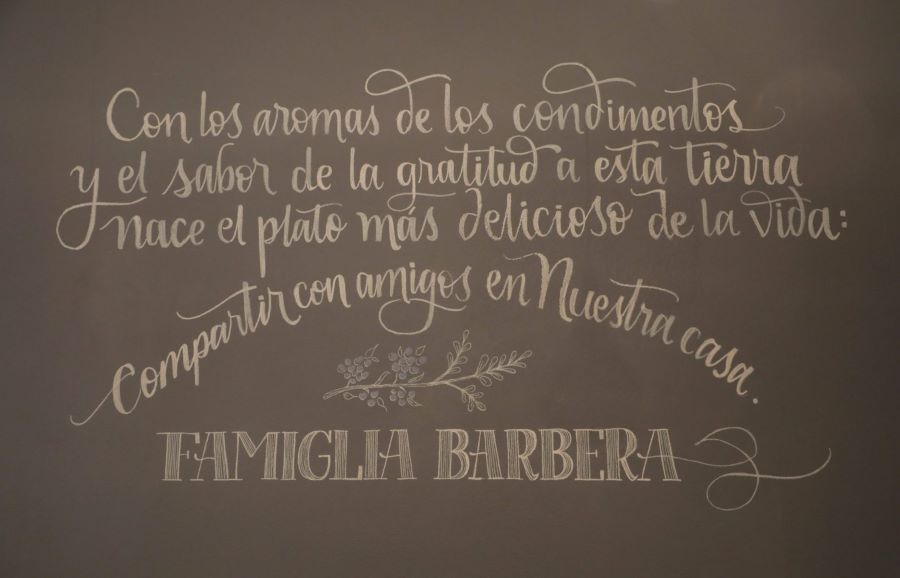 Con los aromas de los condimentos
y el sabor de la gratitud a esta tierra
nace el plato más delicioso de la vida:
Compartir con amigos en Nuestra casa.
FAMIGLIA BARBERA